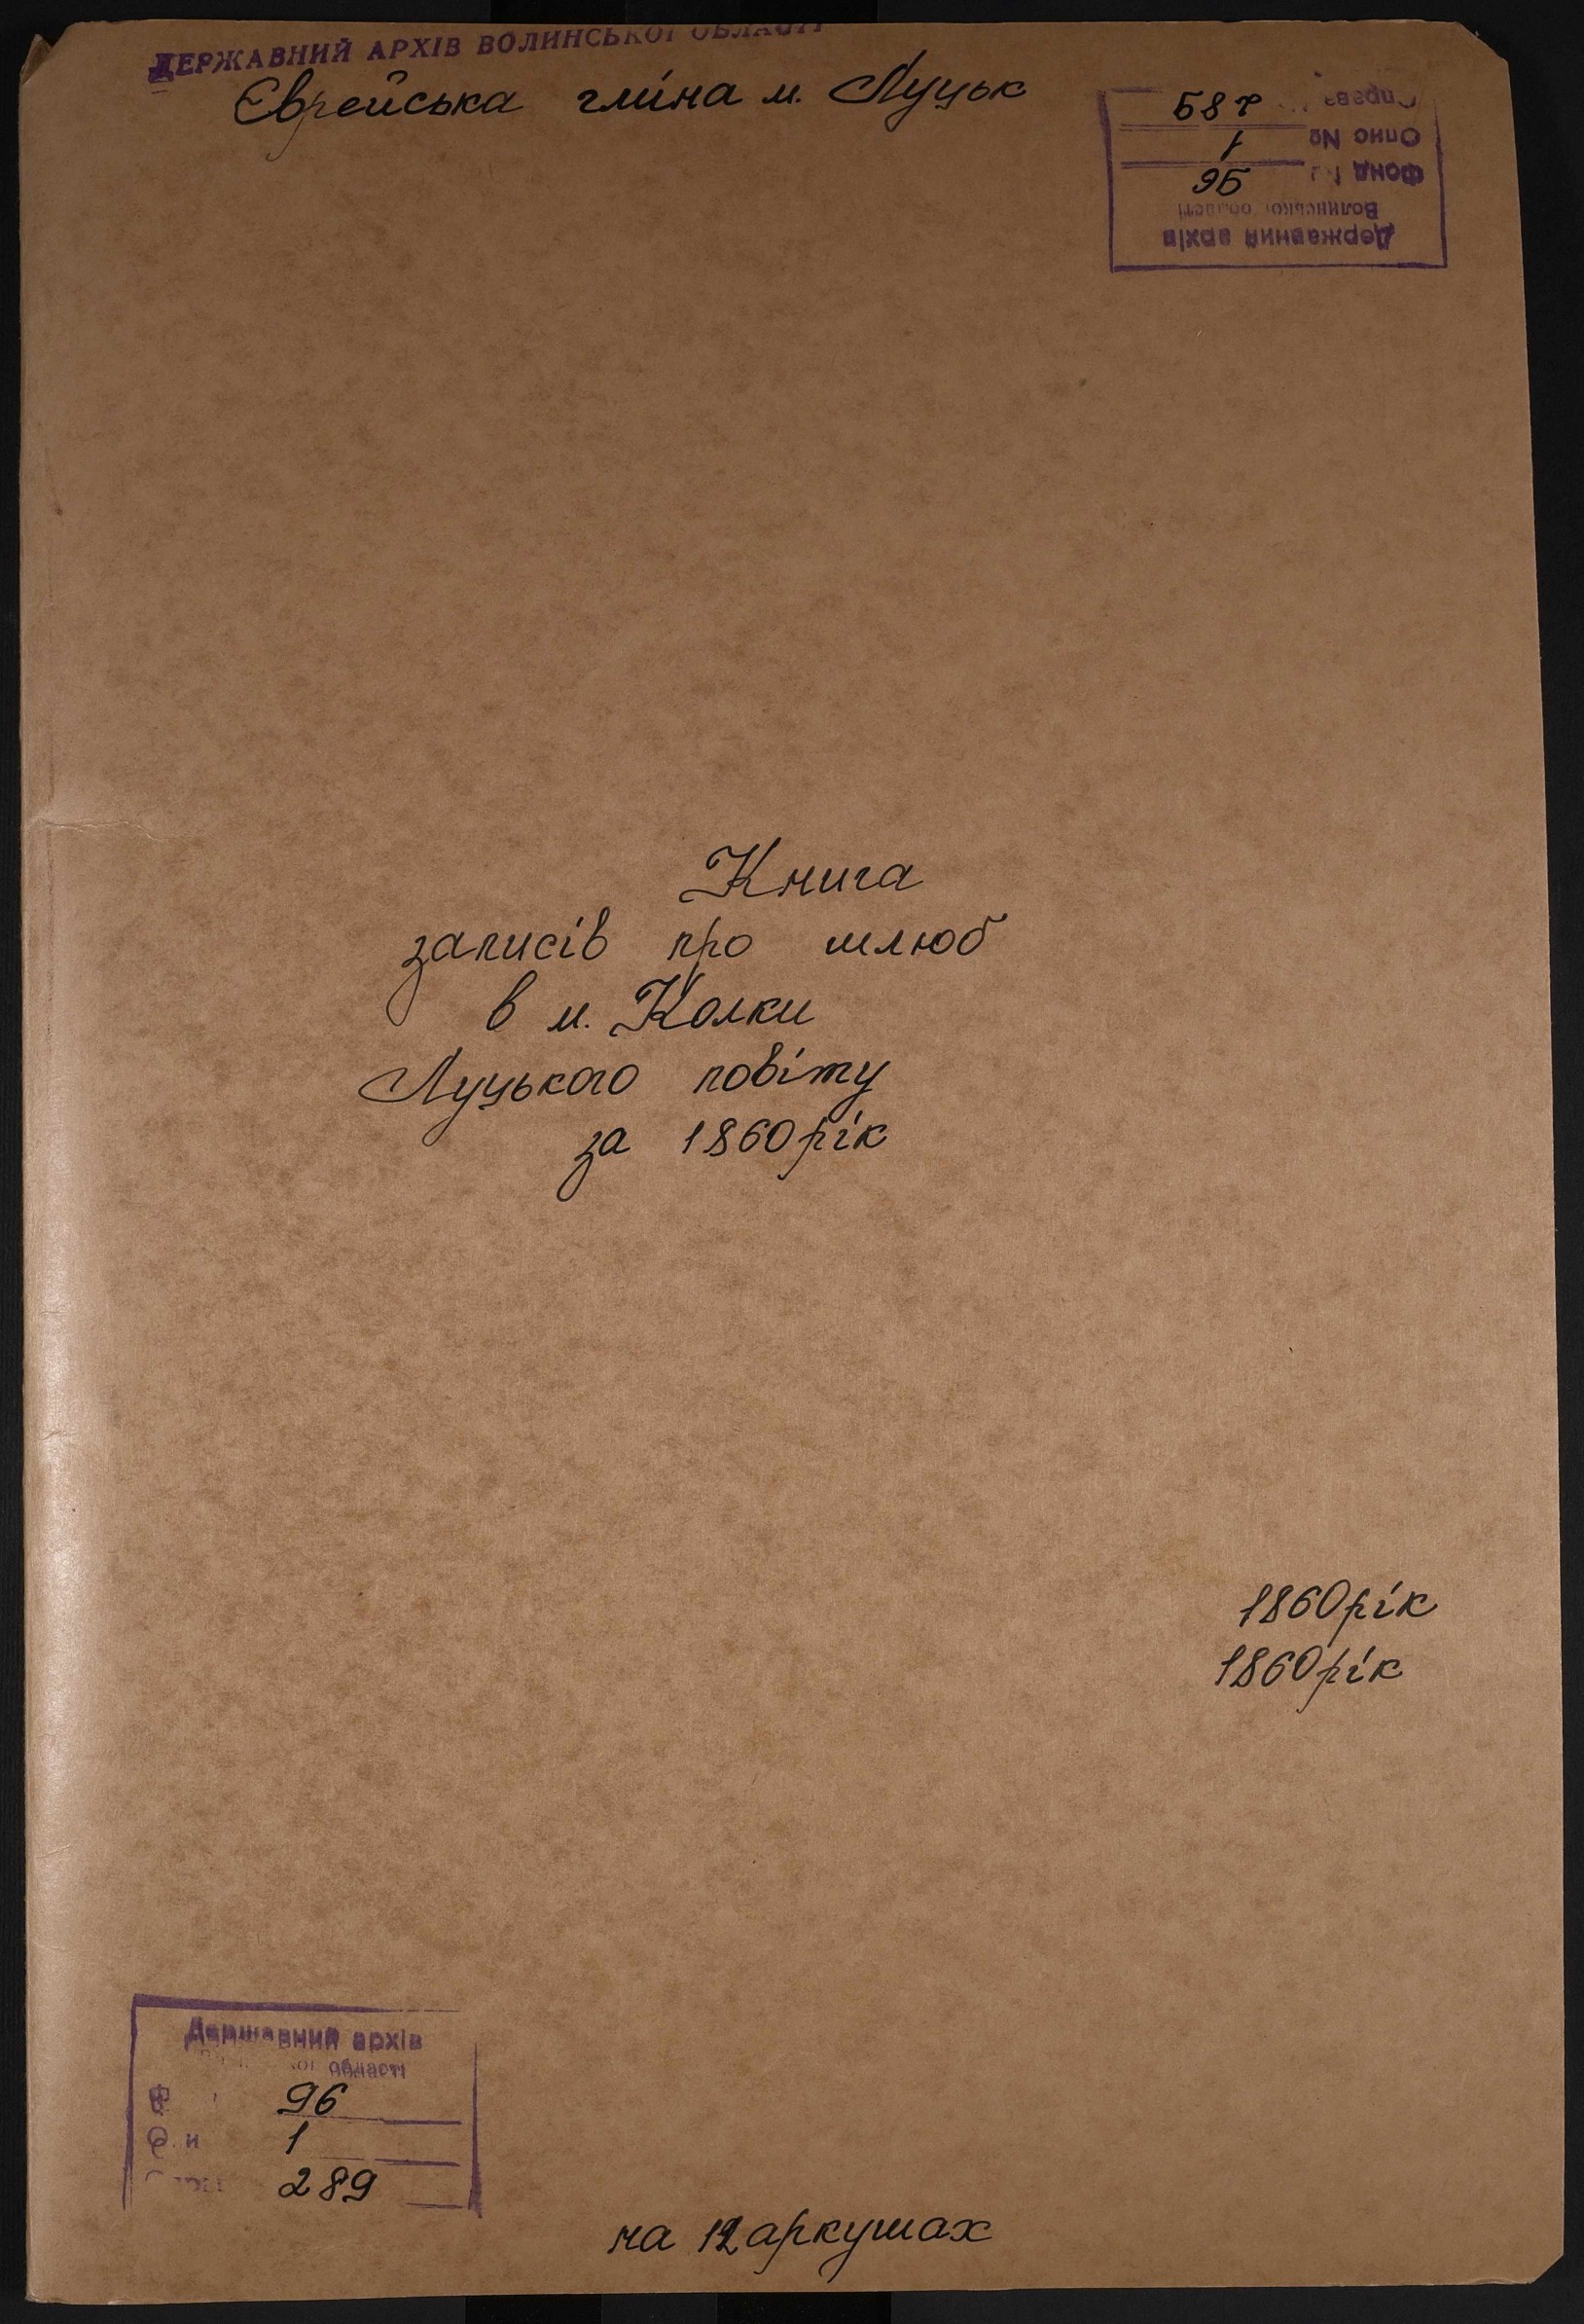 ДЕРЖАВНИЙ АРХІВ ВОЛИНСЬКОЇ ОБЛАСТІ
Єврейська гміна м. Луцьк
Справа 289
Опис № 1
Фонд 96
Волинської області
Державний архів
Книга
записів про шлюб
в м. Колки
Луцького повіту
за 1860 рік
1860 рік
1860 рік
Державний архів
області
96
1
289
на 12 аркушах